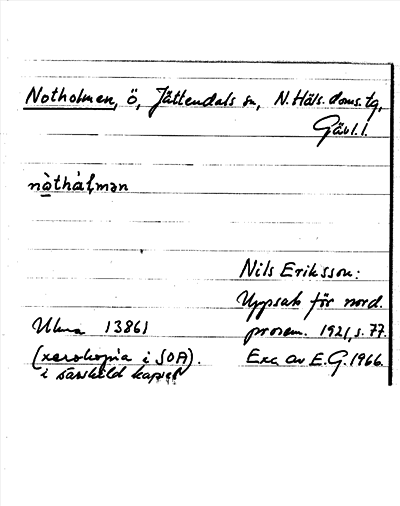 Notholmen, ö, Jättendals sn, N. Häls. doms. tg,
Gävl. l.
nòthàl̨mən
Nils Eriksson:
Uppsats för nord.
prosem. 1921, s. 77.
Exc av E. G. 1966.
Ulma 13861
(xerokopia i SOA).
i särskild kapsel